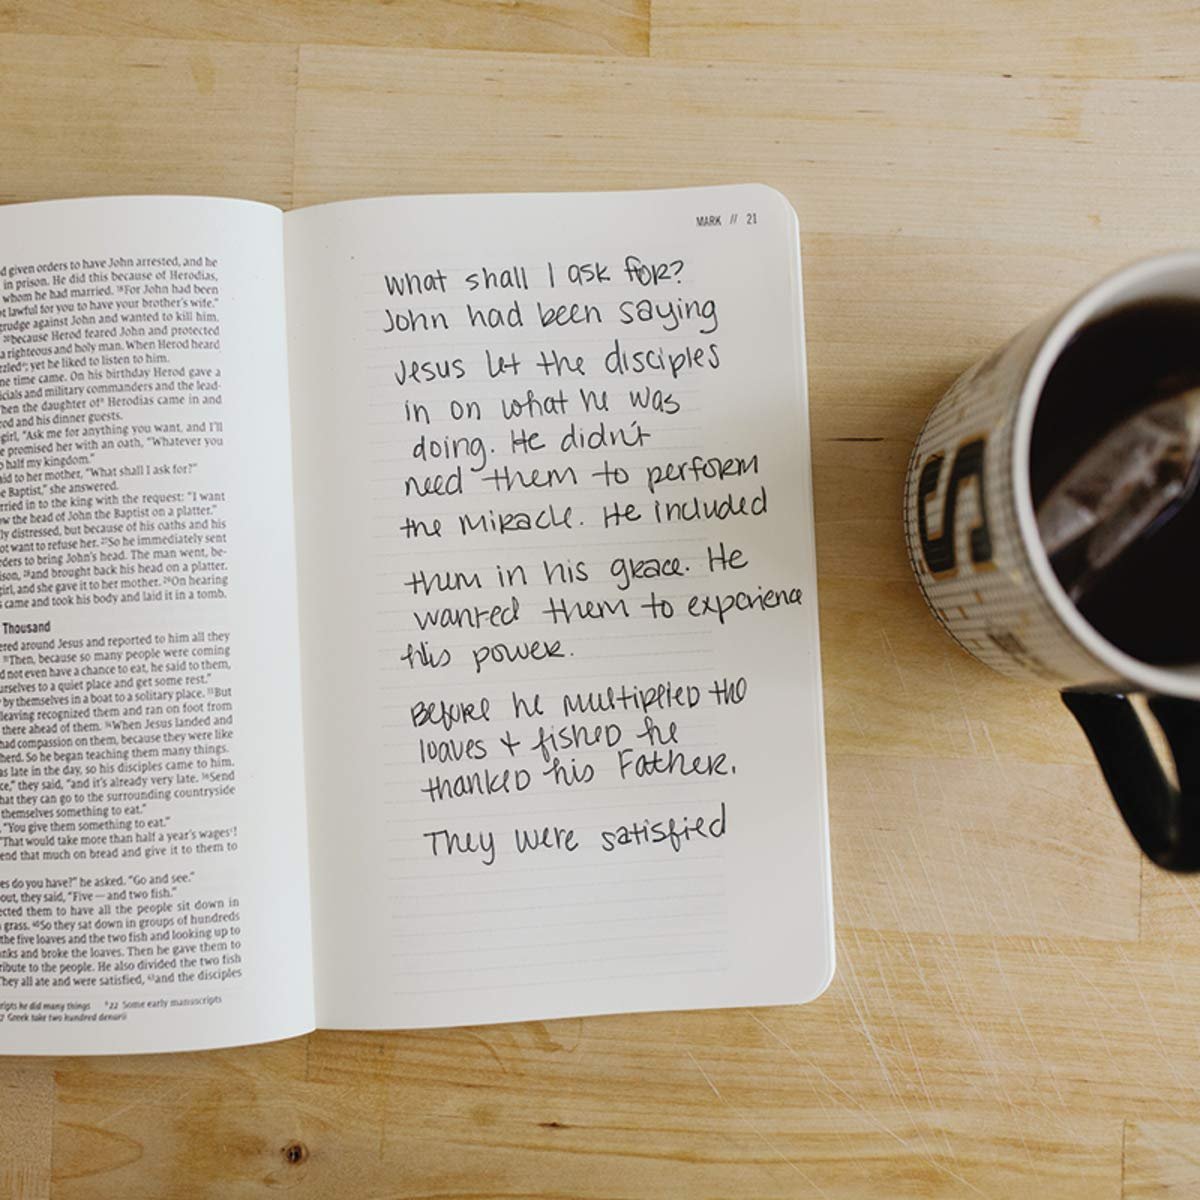 d given orders to have John arrested, and he
in prison. He did this because of Herodias,
whom he had married. ¹⁸For John had been
t lawful for you to have your brother's wife."
grudge against John and wanted to kill him.
²⁰because Herod feared John and protected
a righteous and holy man. When Herod heard
zzled; yet he liked to listen to him.
ne time came. On his birthday Herod gave a
icials and military commanders and the lead-
hen the daughter of Herodias came in and
od and his dinner guests.
girl, "Ask me for anything you want, and I'll
e promised her with an oath, "Whatever you
o half my kingdom."
aid to her mother, "What shall I ask for?"
e Baptist," she answered.
rried in to the king with the request: "I want
w the head of John the Baptist on a platter."
ly distressed, but because of his oaths and his
ot want to refuse her. ²⁷So he immediately sent
ders to bring John's head. The man went, be-
ison, ²⁸and brought back his head on a platter.
girl, and she gave it to her mother. ²⁹On hearing
s came and took his body and laid it in a tomb.
Thousand
ered around Jesus and reported to him all they
³¹Then, because so many people were coming
d not even have a chance to eat, he said to them,
urselves to a quiet place and get some rest."
by themselves in a boat to a solitary place. ³³But
leaving recognized them and ran on foot from
there ahead of them. ³⁴When Jesus landed and
had compassion on them, because they were like
herd. So he began teaching them many things.
as late in the day, so his disciples came to him.
ce," they said, "and it's already very late. ³⁶Send
hat they can go to the surrounding countryside
themselves something to eat."
"You give them something to eat."
"That would take more than half a year's wages!
end that much on bread and give it to them to
es do you have?" he asked. "Go and see."
out, they said, "Five—and two fish."
cted them to have all the people sit down in
grass. ⁴⁰So they sat down in groups of hundreds
the five loaves and the two fish and looking up to
nks and broke the loaves. Then he gave them to
ribute to the people. He also divided the two fish
They all ate and were satisfied, ⁴³and the disciples
ripts he did many things 22 Some early manuscripts
7 Greek take two hundred denarii
MARK // 21
What shall I ask for?
John had been saying
Jesus let the disciples
in on what he was
doing. He didn't
need them to perform
the miracle. He included
them in his grace. He
wanted them to experience
his power.
Before he multiplied the
loaves + fished he
thanked his Father.
They were satisfied
S